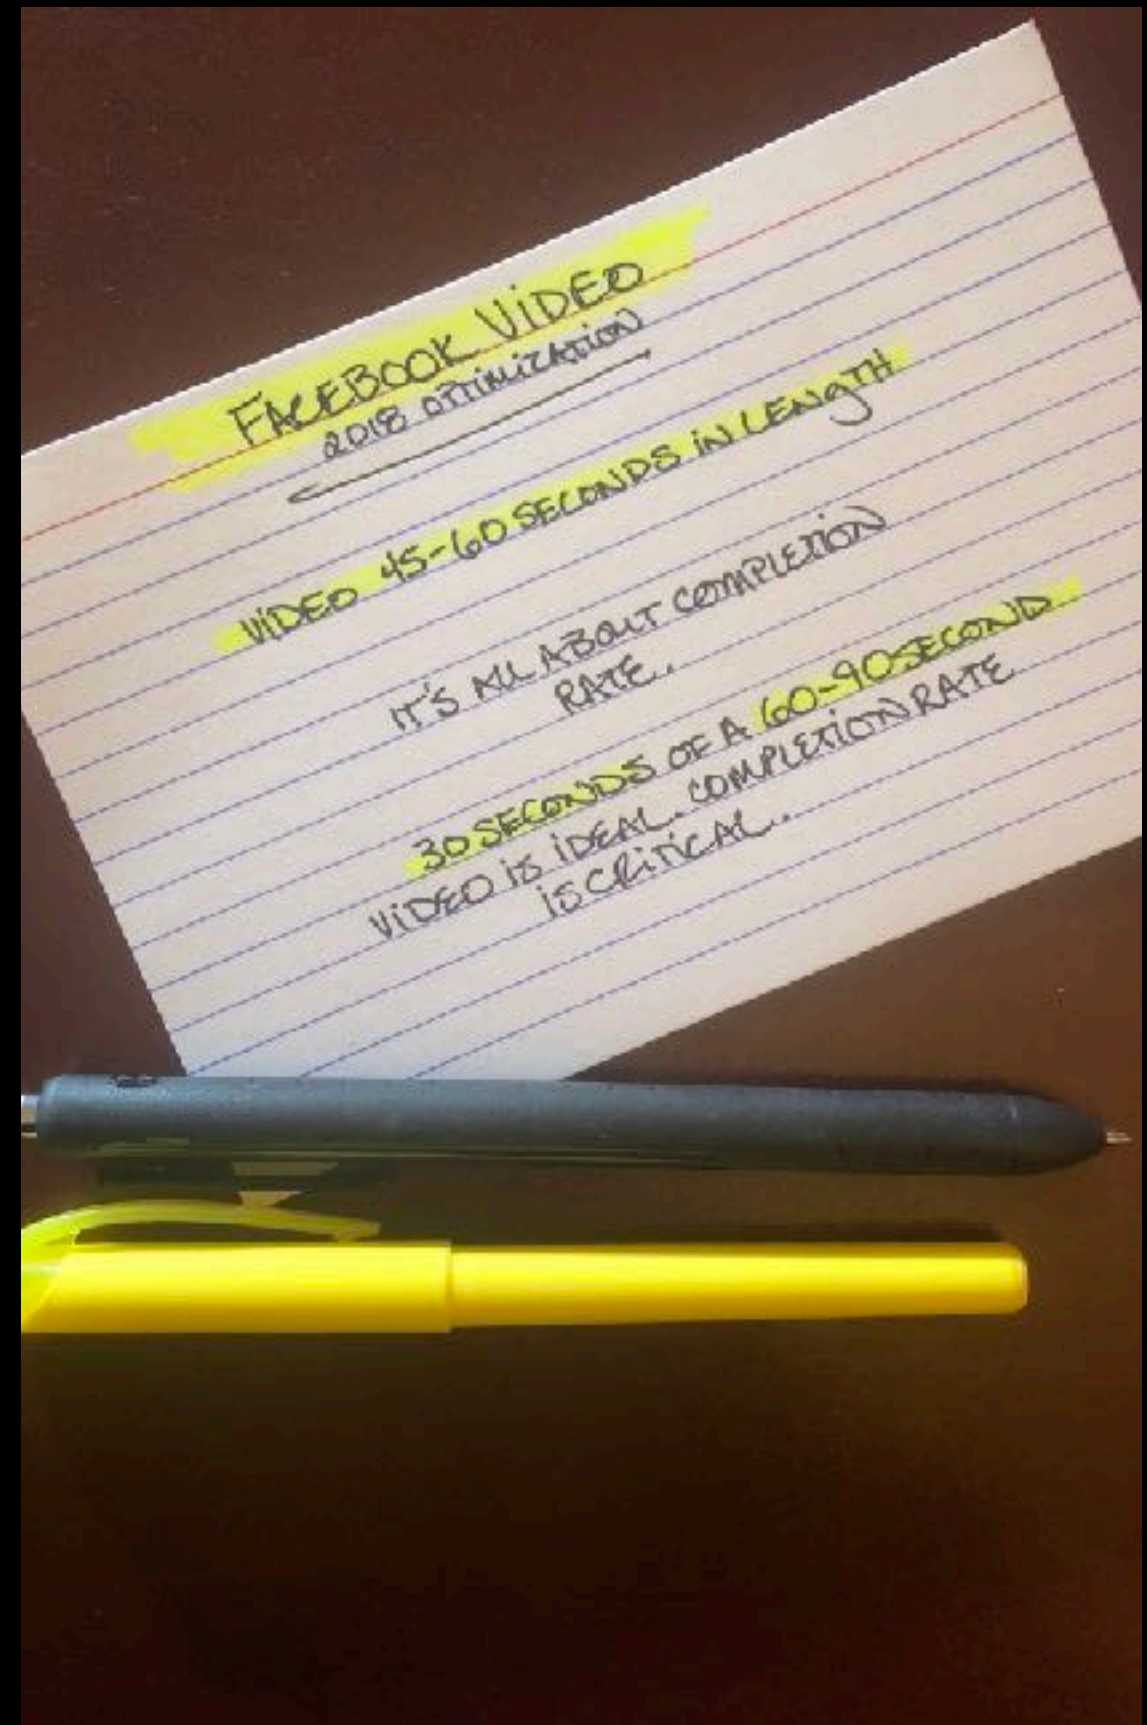 FACEBOOK ViDEO
2018 OPTiMiZATiON
ViDEO 45-60 SECONDS iN LENgTH
IT'S ALL ABOUT COMPLETiON
RATE.
30 SECONDS OF A 60-90 SECOND
ViDEO iS iDEAL. COMPLETiON RATE
iS CRiTiCAL..